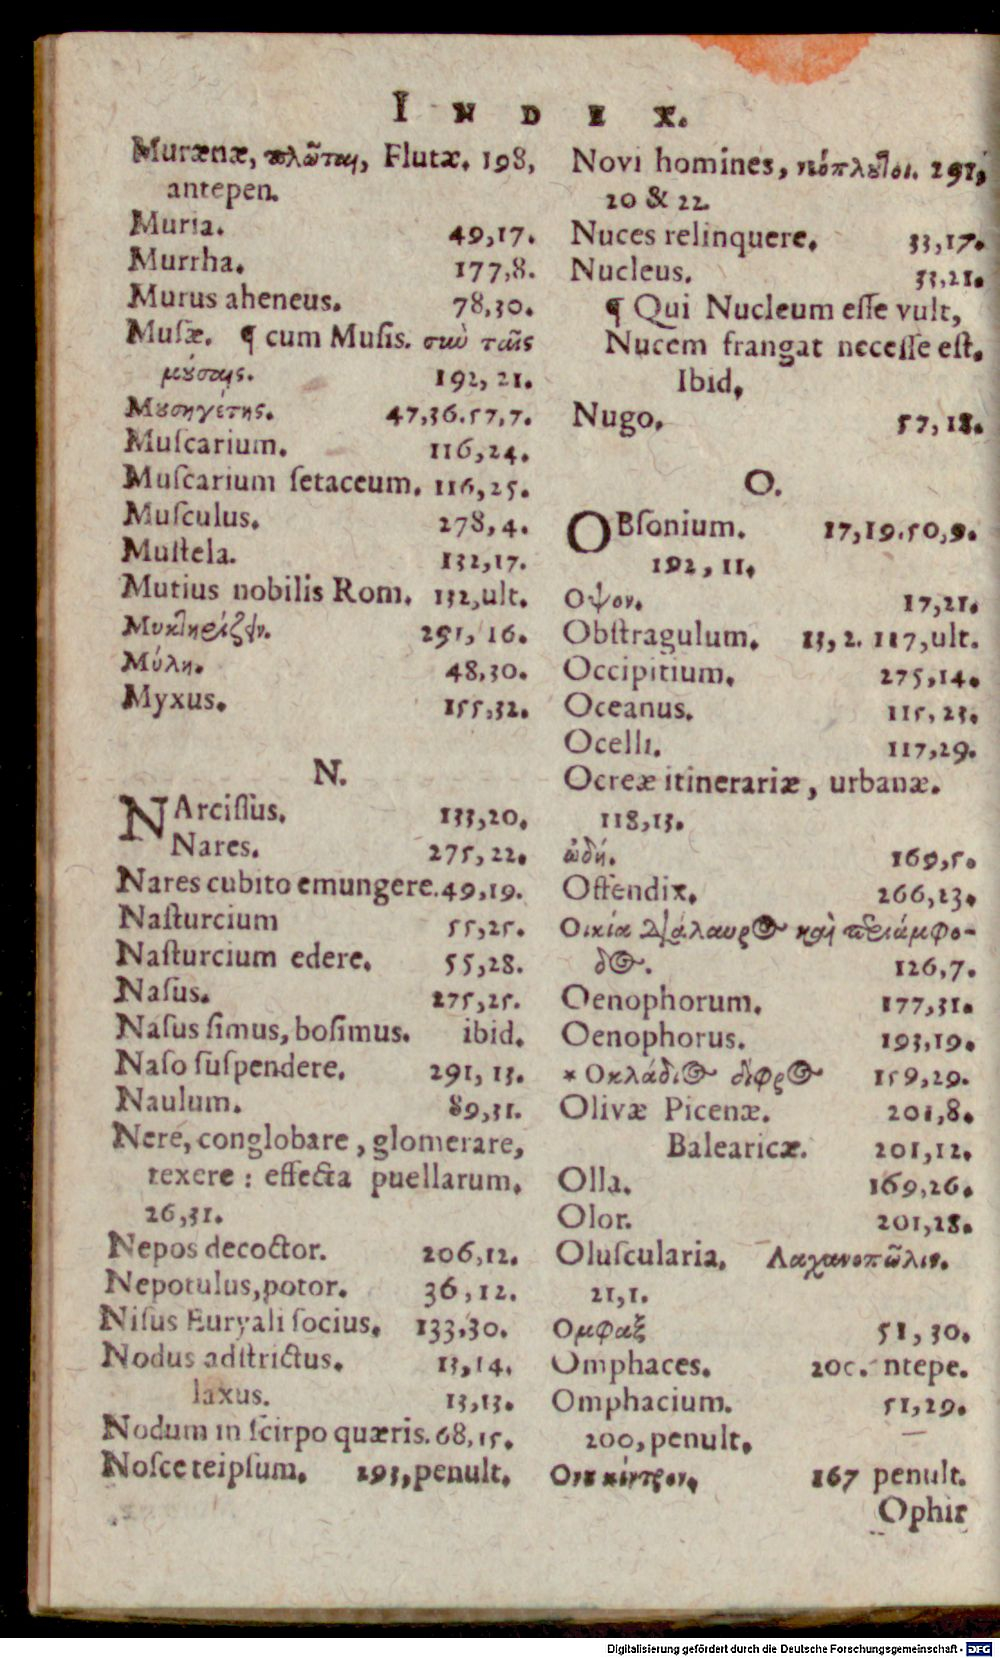 INDEX.
Murænæ, πλῶται, Flutæ. 198,
antepen.
Muria. 49,17.
Murrha. 177,8.
Murus aheneus. 78,30.
Musæ. ¶ cum Musis. σιωὺ ταῖς
μούσαις. 192, 21.
Μουσηγέτης. 47,36.57,7.
Muscarium. 116,24.
Muscarium ſetaceum. 116,25.
Muſculus. 278,4.
Muſtela. 132,17.
Mutius nobilis Rom. 132,ult.
Μυκτηρίζειν. 291, 16.
Μύλη. 48,30.
Myxus. 155,32.
N.
NArciſſus. 133,20.
Nares. 275,22.
Nares cubito emungere. 49,19.
Naſturcium 55,25.
Naſturcium edere. 55,28.
Naſus. 275,25.
Naſus ſimus, boſimus. ibid.
Naſo ſuſpendere. 291, 13.
Naulum. 89,31.
Nere, conglobare, glomerare,
texere : effecta puellarum.
26,31.
Nepos decoctor. 206,12.
Nepotulus, potor. 36,12.
Niſus Euryali ſocius. 133,30.
Nodus adſtrictus. 13,14.
laxus. 13,13.
Nodum in ſcirpo quæris. 68,15.
Noſce teipſum. 293, penult.
Novi homines, νεόπλουτοι. 291,
20 & 22.
Nuces relinquere. 33,17.
Nucleus. 33,21.
¶ Qui Nucleum eſſe vult,
Nucem frangat neceſſe eſt.
Ibid.
Nugo. 57,18.
O.
OBſonium. 17,19.50,9.
192, 11.
Οψον. 17,21.
Obſtragulum. 13, 2. 117,ult.
Occipitium. 275,14.
Oceanus. 115,23.
Ocelli. 117,29.
Ocreæ itinerariæ, urbanæ.
118,13.
ᾠδή. 169,5.
Offendix. 266,23.
Οικία Διάλαυρος καὶ περιάμφο-
δος. 126,7.
Oenophorum. 177,31.
Oenophorus. 193,19.
* Οκλάδιος δίφρος 159,29.
Olivæ Picenæ. 201,8.
Balearicæ. 201,12.
Olla. 169,26.
Olor. 201,28.
Oluſcularia. Λαχανοπῶλις.
21,1.
Ομφαξ 51, 30.
Omphaces. 200. ntepe.
Omphacium. 51,29.
200, penult.
167 penult.
Ophir
Digitalisierung gefördert durch die Deutsche Forschungsgemeinschaft - DFG